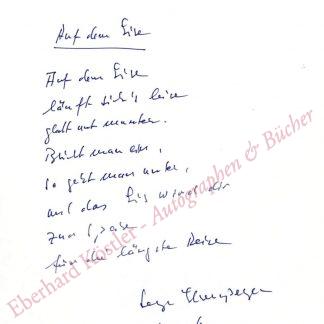 Auf dem Eise
Auf dem Eise
läuft sich's leise
glatt und munter.
Bricht man ein,
so geht man unter,
und das Eis wird
zur
für die längste Reise
Eberhard Köstler - Autographen & Bücher